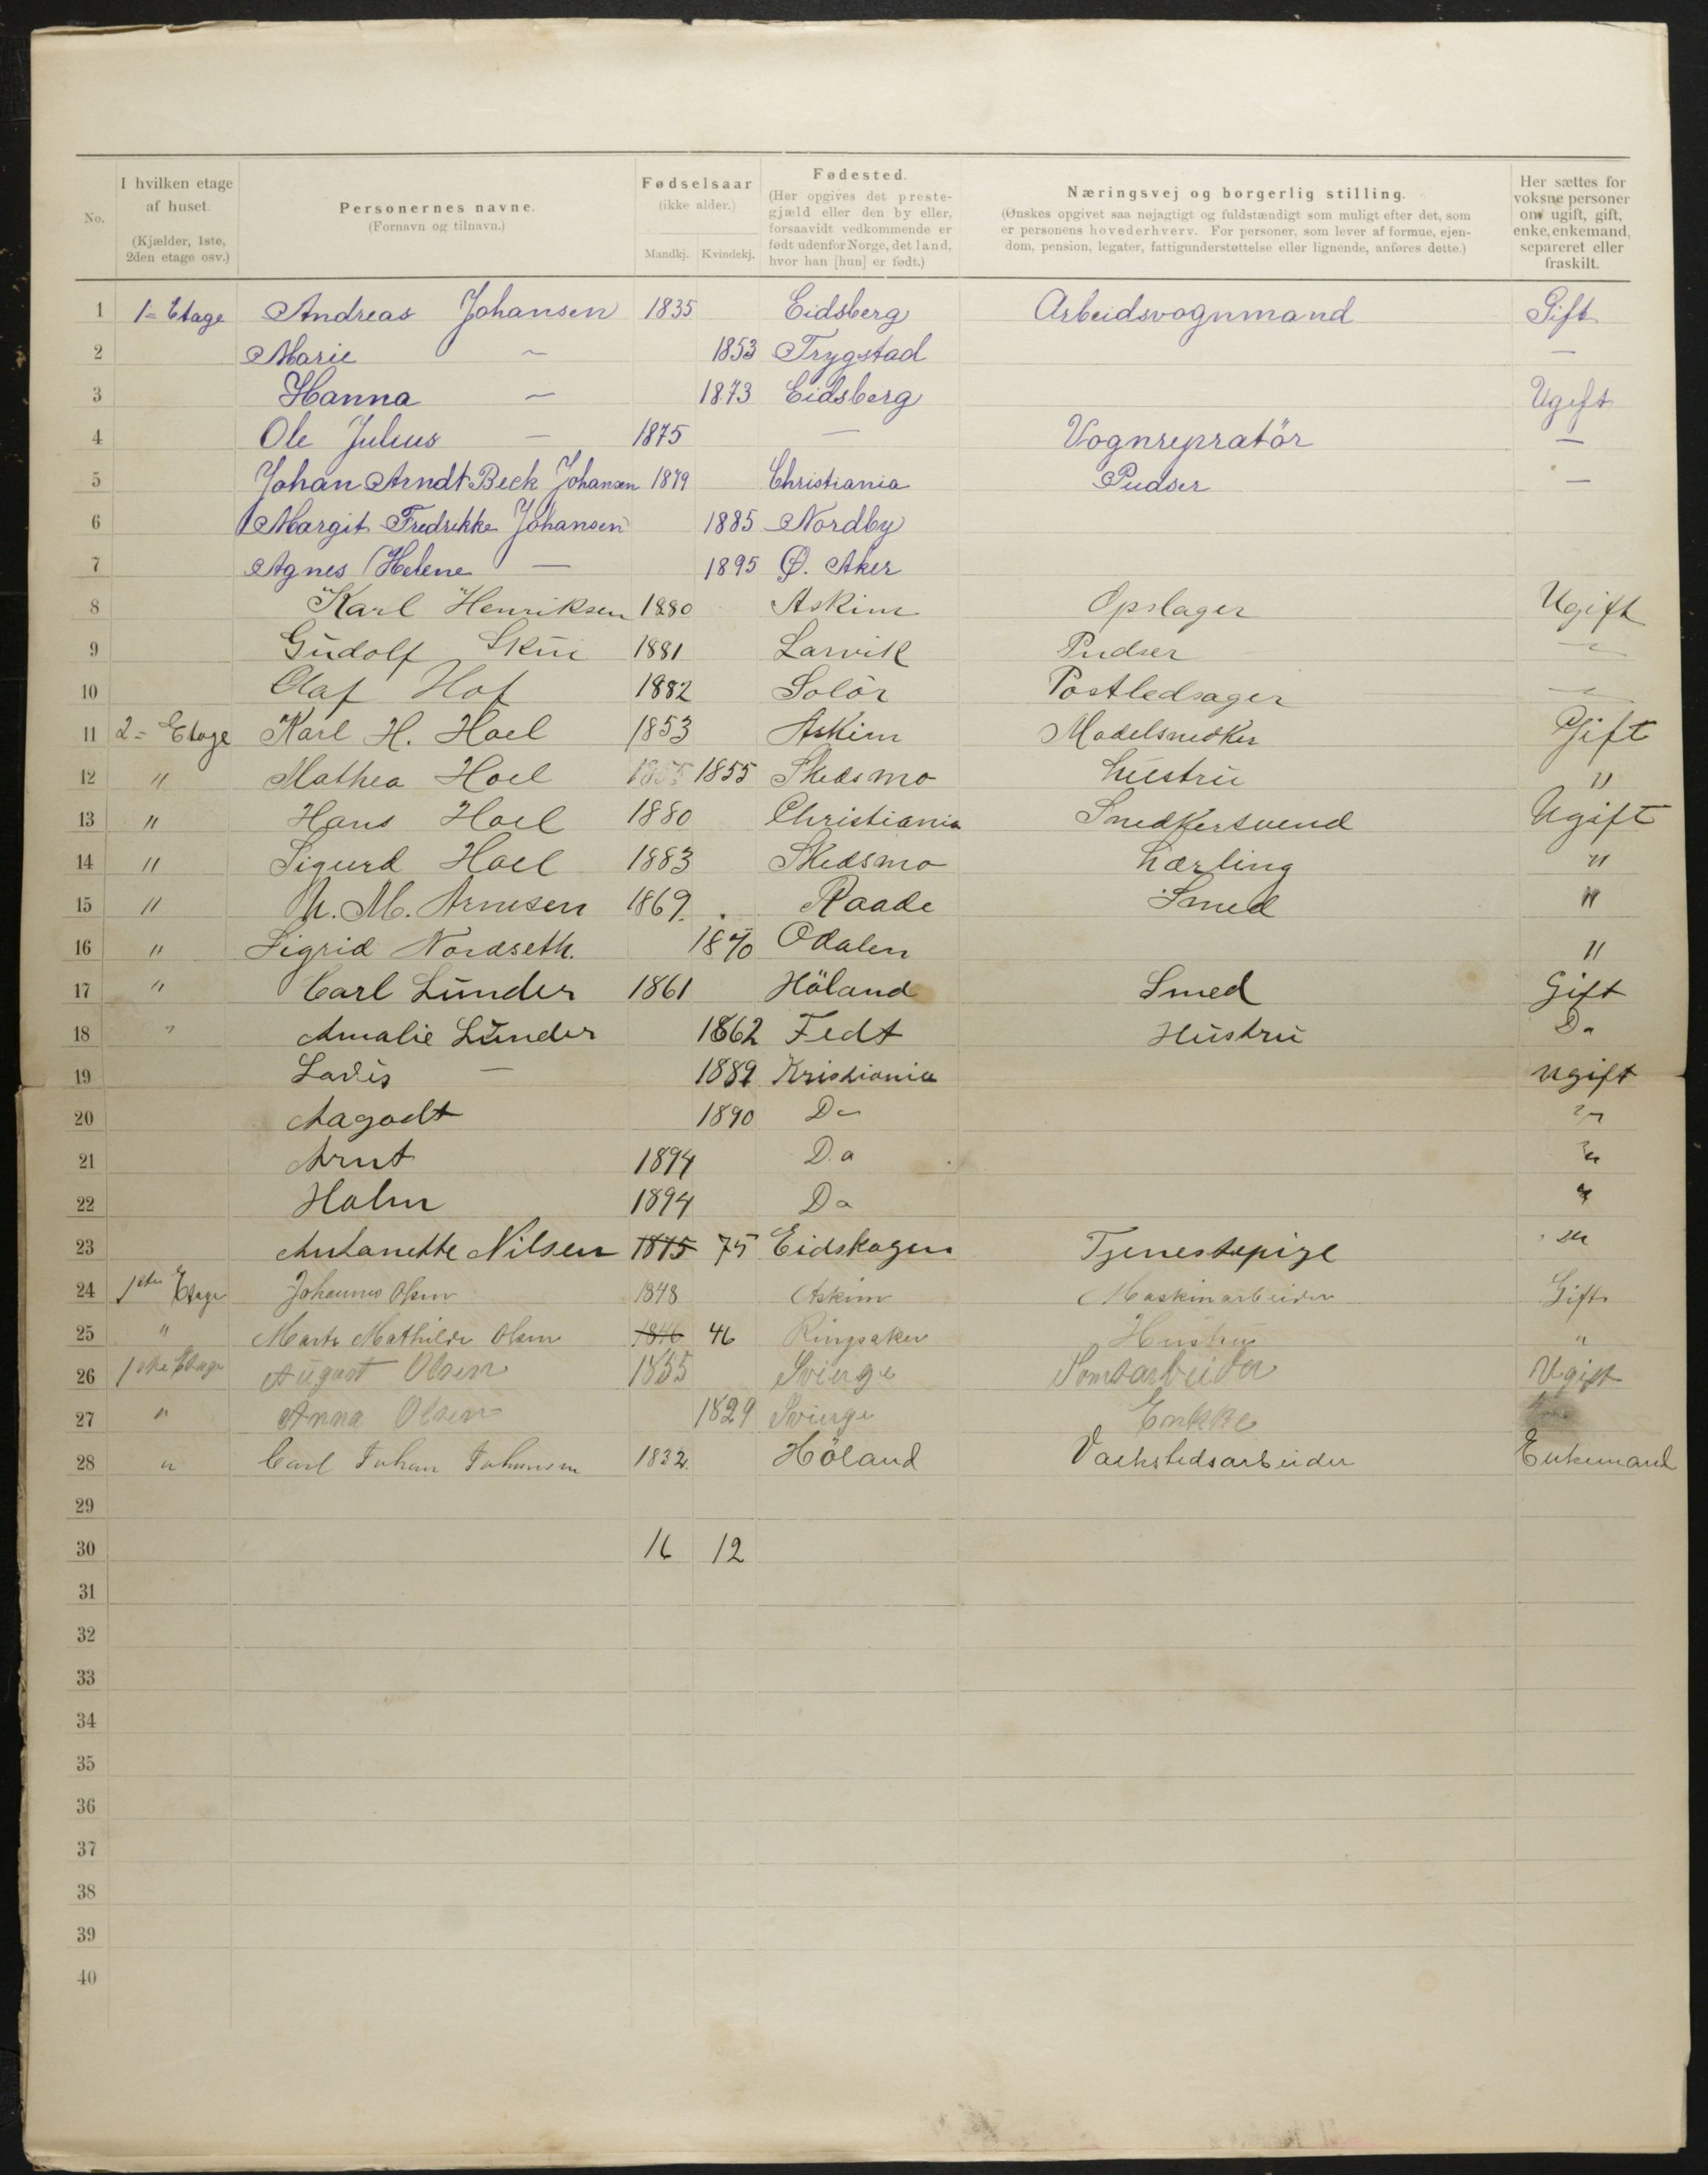 No.
I hvilken etage
af huset.
(Kjælder, 1ste,
2den etage osv.)
Personernes navne.
(Fornavn og tilnavn.)
Fødselsaar
(ikke alder.)
Mandkj. Kvindekj.
Fødested.
(Her opgives det preste-
gjæld eller den by eller,
forsaavidt vedkommende er
født udenfor Norge, det land,
hvor han [hun] er født.)
Næringsvej og borgerlig stilling.
(Ønskes opgivet saa nøjagtigt og fuldstændigt som muligt efter det, som
er personens hovederhverv. For personer, som lever af formue, ejen-
dom, pension, legater, fattigunderstøttelse eller lignende, anføres dette.)
Her sættes for
voksne personer
om ugift, gift,
enke, enkemand,
separeret eller
fraskilt.
1 1= Etage Andreas Johansen 1835 Eidsberg Arbeidsvognmand Gift
2 Marie — 1853 Trygstad —
3 Hanna — 1873 Eidsberg Ugift
4 Ole Julius — 1875 — Vognrepratör —
5 Johan Arndt Beck Johansen 1879 Christiania Pudser —
6 Margit Fredrikke Johansen 1885 Nordby
7 Agnes Helene — 1895 Ø. Aker
8 Karl Henriksen 1880 Askim Opslager Ugift
9 Gudolf Skui 1881 Larvik Pudser —
10 Olaf Hof 1882 Solör Postledsager —
11 2= Etage Karl H. Hoel 1853 Askim Modelsnedker Gift
12 " Mathea Hoel 1855 1855 Skedsmo Hustru "
13 " Hans Hoel 1880 Christiania Snedkersvend Ugift
14 " Sigurd Hoel 1883 Skedsmo Lærling "
15 " M. Arnesen 1869. Raade Smed "
16 " Sigrid Nordseth. 1870 Odalen "
17 " Carl Lunder 1861 Höland Smed Gift
18 " Amalie Lunder 1862 Fedt Hustru Do
19 — 1889 Kristiania Ugift
20 Aagodt 1890 Do "
21 Arnt 1894 Do "
22 Holm 1894 Do "
23 Antonette Nilsen 1875 75 Eidskogen Tjenestepige "
24 1ste Etage Johannes Olsen 1848 Askim Maskinarbeider Gift
25 " Marte Mathilde Olsen 1846 46 Ringsaker Hustru "
26 1ste Etage August Olsen 1855 Sverige Tomtarbeider Ugift
27 " Anna Olsen 1829 Sverige Enkke
28 " Carl Johan Johansen 1832. Höland Værkstedsarbeider Enkemand
29
30 16 12
31
32
33
34
35
36
37
38
39
40